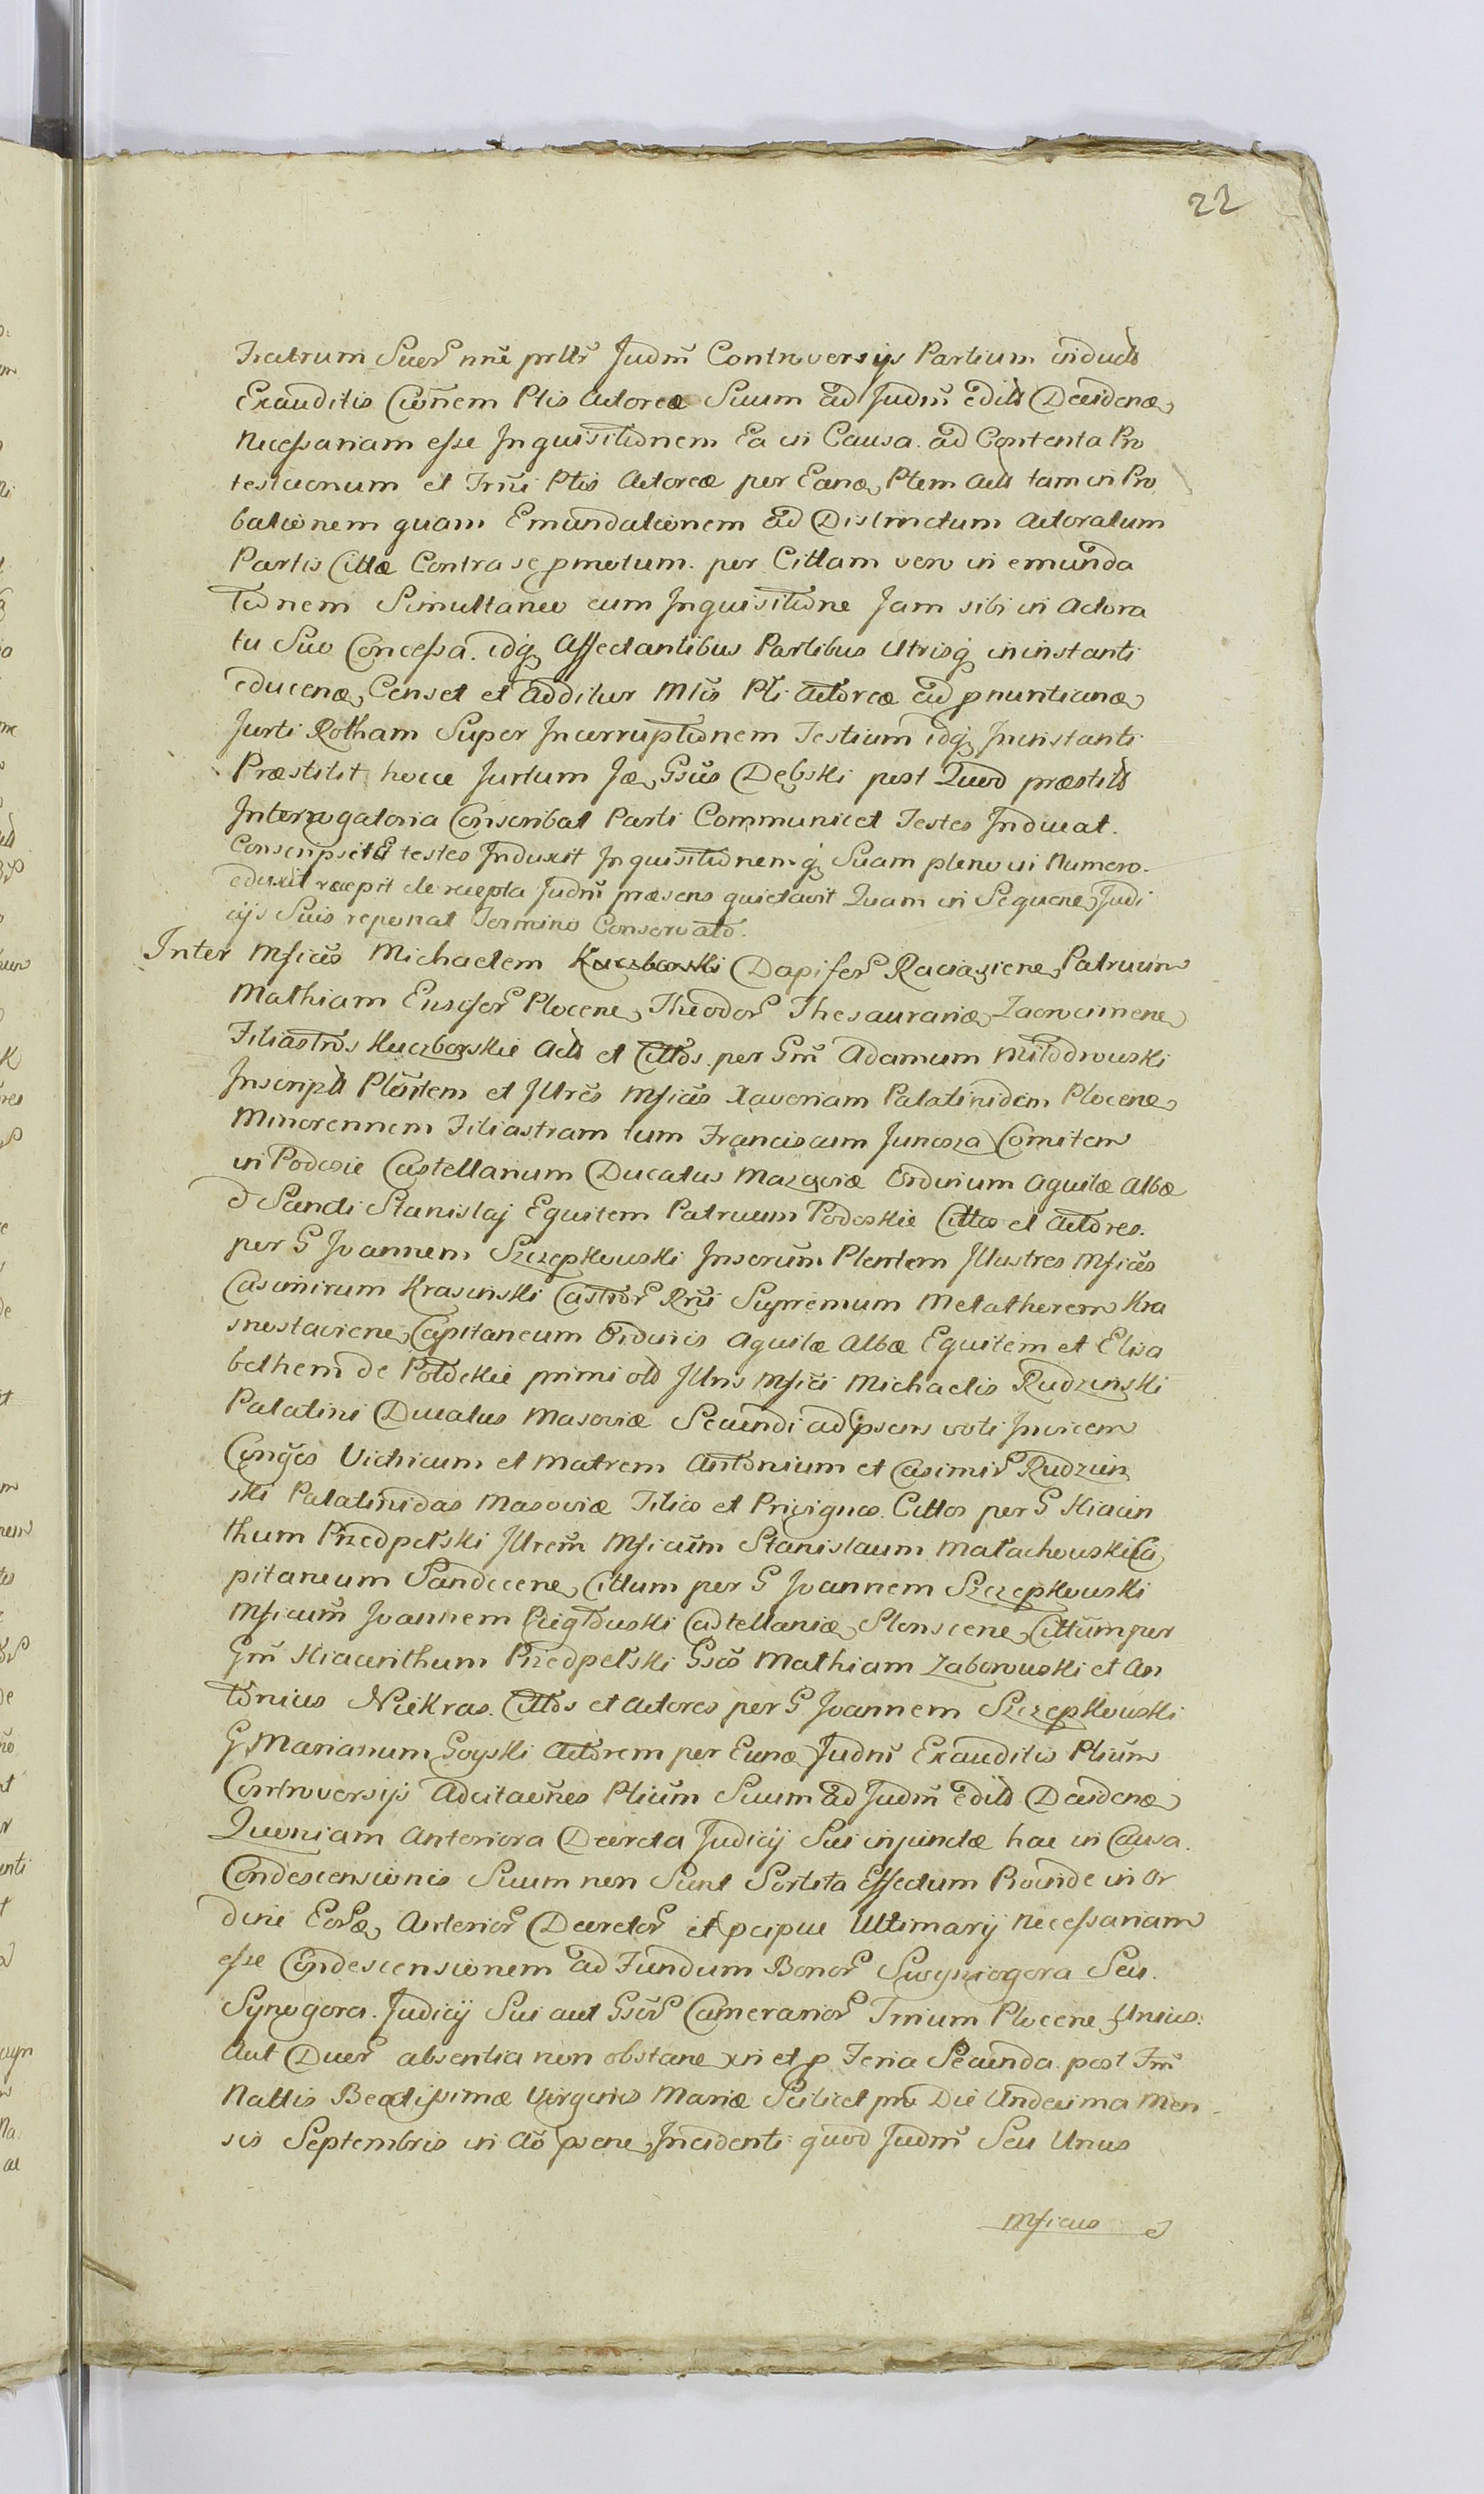 22
Fratrum Suor nne prltr Judm Controversijs Partium induct
Exauditis Cionem Ptis Actoreæ Suum ad Judm edito Decidenæ
Necessariam esse Inquisitionem Ea in Causa ad Contenta Pro
testaonum et Trmi Ptis Actoreæ per Eanæ Ptem Act tam in Pro
bationem quam Emundationem ad Distinctum Actoratum
Partis Cittæ Contra se pmotum per Cittam vero in emunda
tionem Simultaneo cum Inquisitione Jam sibi in Actora
tu Suo Concessa idq Affectantibus Partibus Utrisq in instanti
educenæ Censet et Additur Mtis Pti Actoreæ ad pnuntianæ
Jurti Rotham Super Incorruptionem Testium idq Ininstanti
Præstitit hocce Jurtum Jæ Gsus Dębski post Quod præstito
Interrogatoria Conscribat Parti Communicet Testes Inducat.
Conscripsit et testes Induxit Inquisitionemq Suam pleno in Numero
eduxit recepit de recepta Judm præsens quietavit Quam in Sequene Judi
cijs Suis reponat Termino Conservato.
Inter Mficos Michaelem Kuczborski Dapifer Raciaziene Patruum
Mathiam Ensifer Plocene Theodor Thesaurariæ Zacrocimene
Filiastros Kuczborskie Act et Cittos per Gm Adamum Miłodrowski
Inscript Pltem et Illres Mficos Xaveriam Palatinidem Plocene
Minorennem Filiastram tum Franciscum Junosza Comitem
in Podosie Castellanum Ducatus Mazoviæ Ordinum Aquilæ Albæ
et Sancti Stanislaj Equitem Patruum Podoskie Cittos et Actores
per G Joannem Szczepkowski Inscrum Plentem Illustres Mficos
Casimirum Krasinski Castror Rni Supremum Metathorem Kra
snostaviene Capitaneum Ordinis Aquilæ Albæ Equitem et Elisa
bethem de Potockie primi olo Illris Mfici Michaelis Rudzinski
Palatini Ducatus Masoviæ Secundi ad psens voti Invicem
Conges Vitricum et Matrem Antonium et Casimir Rudzin
ski Palatinidas Masoviæ Filios et Privignos Cittos per G Hiacin
thum Przedpełski Illrem Mficum Stanislaum Małachowski Ca
pitaneum Sandecene Cittum per G Joannem Szczepkowski
Mficum Joannem Castellaniæ Plonscene Cittum per
Gm Hiacinthum Przedpełski Gsos Mathiam Zaborowski et An
tonius Niekras Cittos et Actores per G Joannem Szczepkowski
G Marianum Goyski Actorem per Eunæ Judm Exauditis Ptium
Controversijs Adcitaones Ptium Suum ad Judm edito Decidenæ
Quoniam Anteriora Decreta Judicij Sui injunctæ hac in Causa
Condescensionis Suum non Sunt Sortita Effectum Proinde in or
dine Eoræ Anterior Decretor et pcipue Ultimarij Necessariam
esse Condescensionem ad Fundum Bonor Swyniogora Seu
Synogora Judicij Sui aut Gsor Camerarior Trium Plocene Unius
Aut Duor absentia non obstane in et p Feria Secunda post Fm
Nattis Beatissimæ Virginis Mariæ Scilicet pro Die Undecima Men
sis Septembris in Ao psene Incidenti quod Judm Seu Unus
Mficus